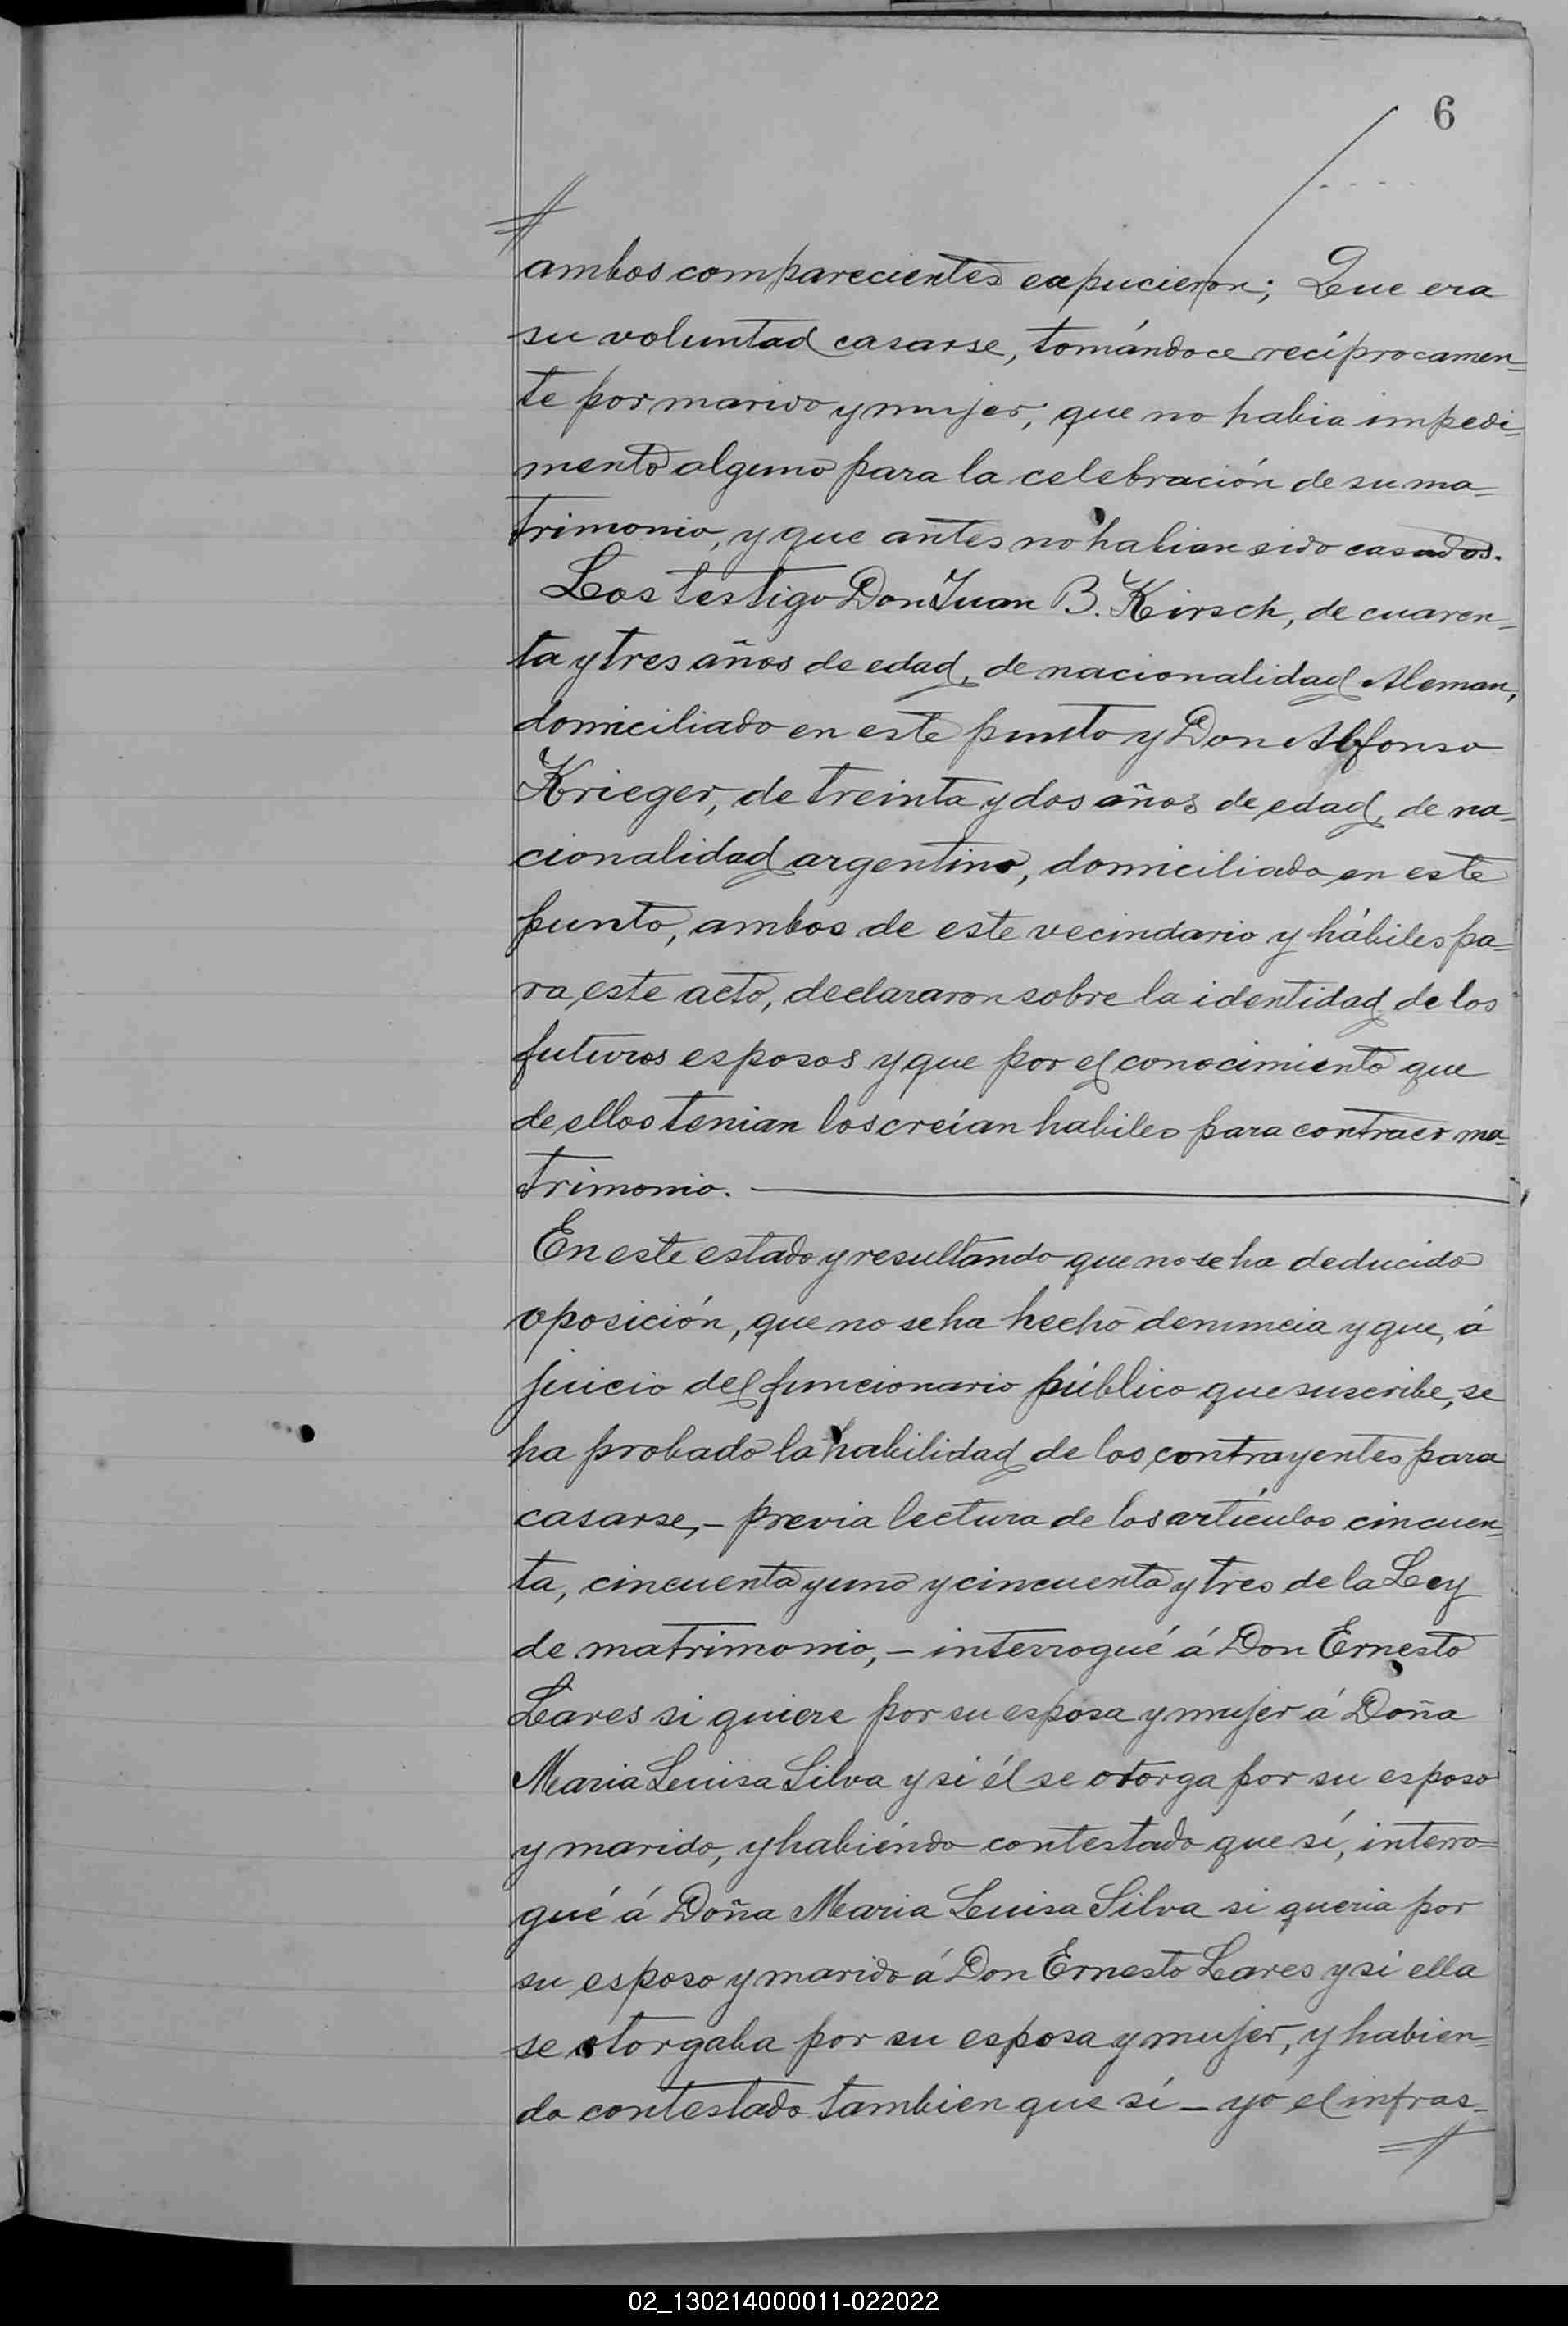 6
ambos comparecientes expucieron; Que era
su voluntad casarse, tomándoce recíprocamen=
te por marido y mujer, que no habia impedi=
mento alguno para la celebración de su ma=
trimonio, y que antes no habian sido casados.
Los testigo Don Juan B. Kirsch, de cuaren=
ta y tres años de edad, de nacionalidad Aleman,
domiciliado en este punto y Don Alfonso
Krieger, de treinta y dos años de edad, de na=
cionalidad argentino, domiciliado en este
punto, ambos de este vecindario y hábiles pa=
ra este acto, declararon sobre la identidad de los
futuros esposos y que por el conocimiento que
de ellos tenian los creían habiles para contraer ma=
trimonio.
En este estado y resultando que no se ha deducido
oposición, que no se ha hecho denuncia y que, á
juicio del funcionario público que suscribe, se
ha probado la habilidad de los contrayentes para
casarse, - previa lectura de los artículos cincuen=
ta, cincuenta y uno y cincuenta y tres de la Ley
de matrimonio, - interrogué á Don Ernesto
Lares si quiere por su esposa y mujer á Doña
Maria Luisa Silva y si él se otorga por su esposo
y marido, y habiéndo contestado que sí, interro=
gué á Doña Maria Luisa Silva si queria por
su esposo y marido á Don Ernesto Lares y si ella
se otorgaba por su esposa y mujer, y habien=
do contestado tambien que sí - yo el infras=
02_130214000011-022022